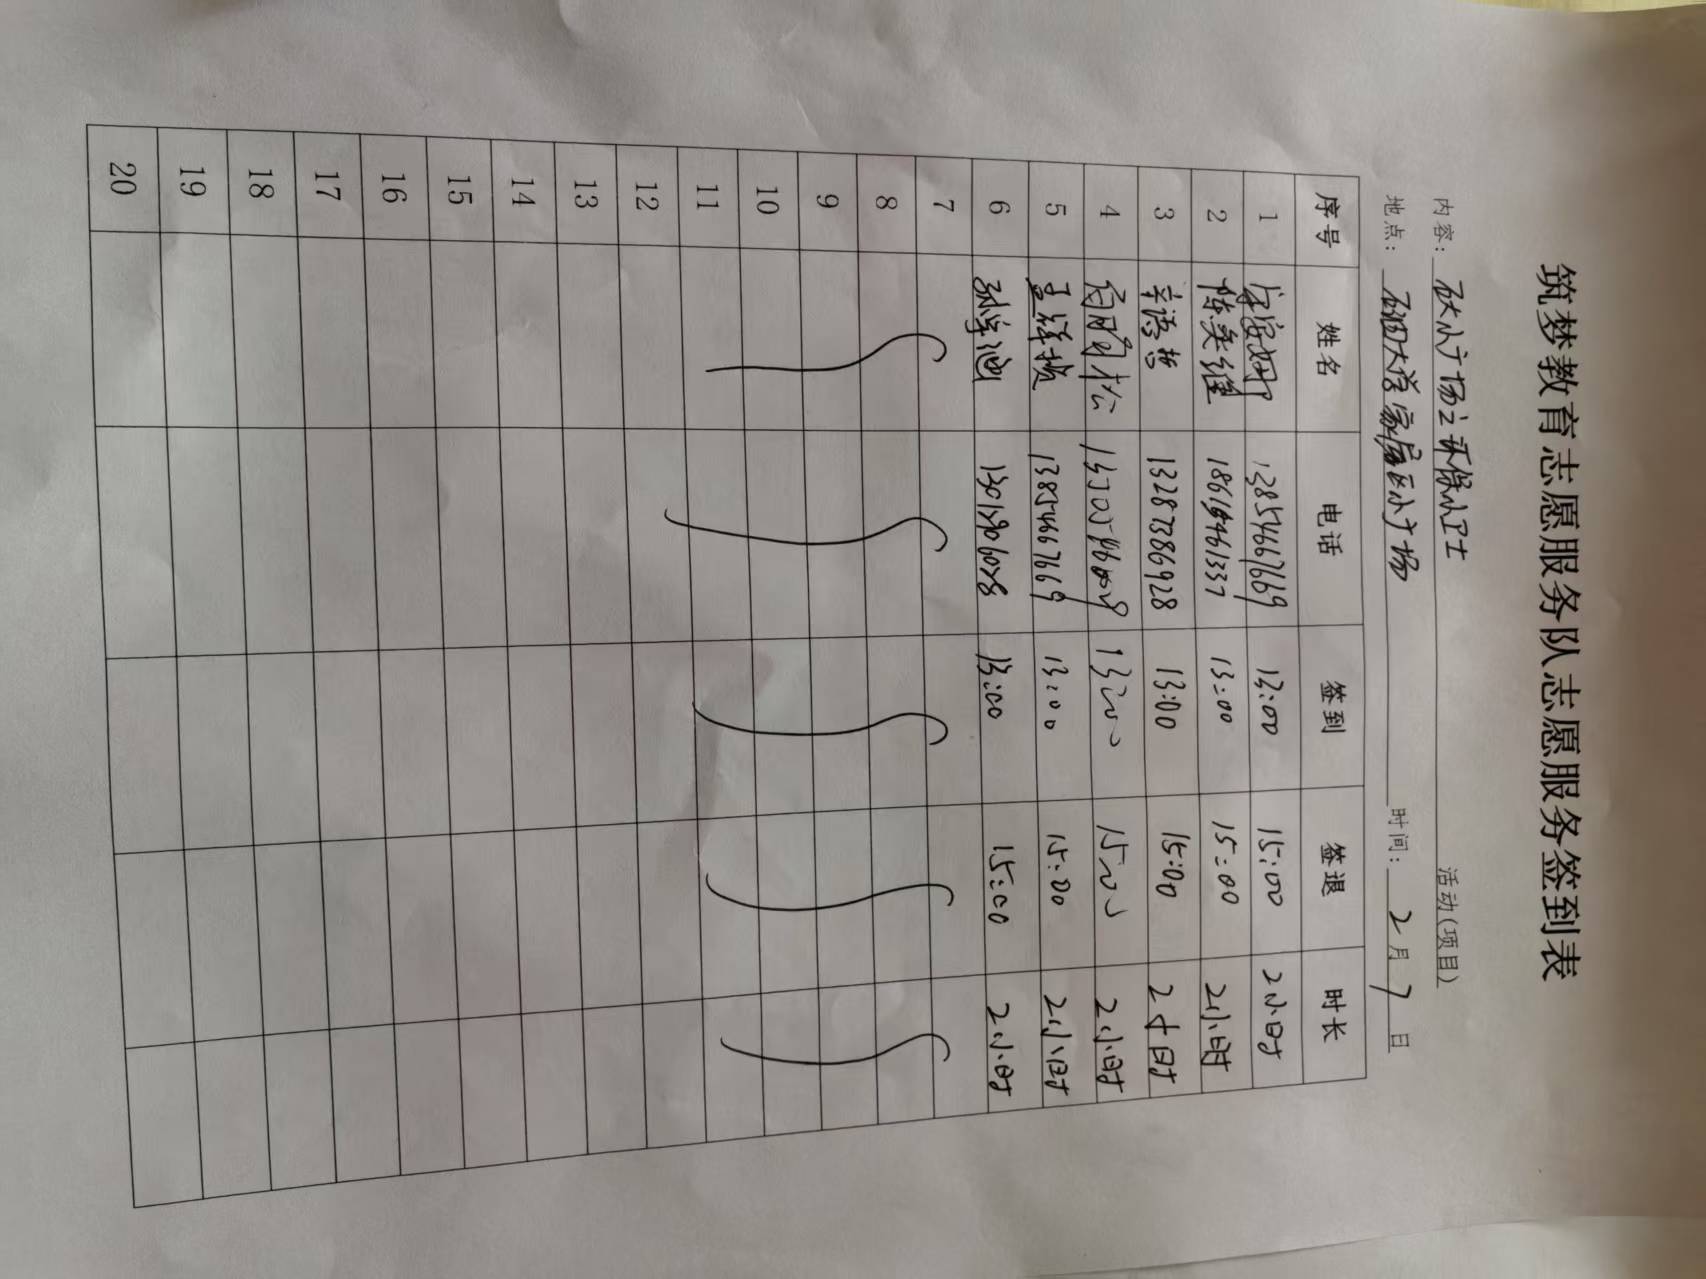 筑梦教育志愿服务队志愿服务签到表
内容: 石大小广场之环保小卫士 活动(项目)
地点: 石油大学家属区小广场 时间: 2月7日
序号 姓名 电话 签到 签退 时长
1 13854667669 13:00 15:00 2小时
2 陈奕维 13:00 15:00 2小时
3 辛语哲 13287386928 13:00 15:00 2小时
4 松 13:00 15:00 2小时
5 13854667669 13:00 15:00 2小时
6 13:00 15:00 2小时
7
8
9
10
11
12
13
14
15
16
17
18
19
20